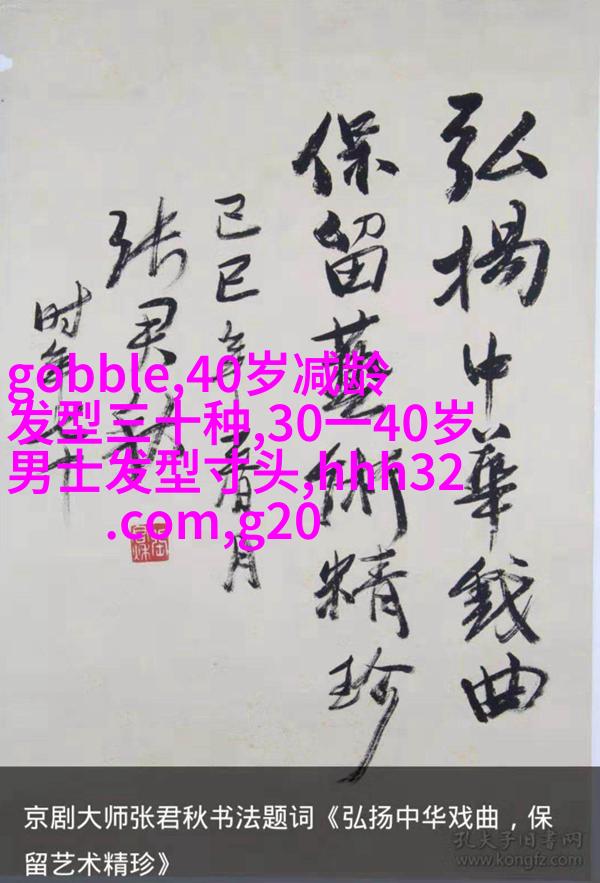 弘揚中華戏曲
保留藝術精珍
己巳年春月
张君秋
时年
gobble,40岁减龄
发型三十种,30一40岁
男士发型寸头,hhh32
.com,g20
京剧大师张君秋书法题词《弘扬中华戏曲，保
留艺术精珍》
孔夫子旧书网
www.kongfz.com